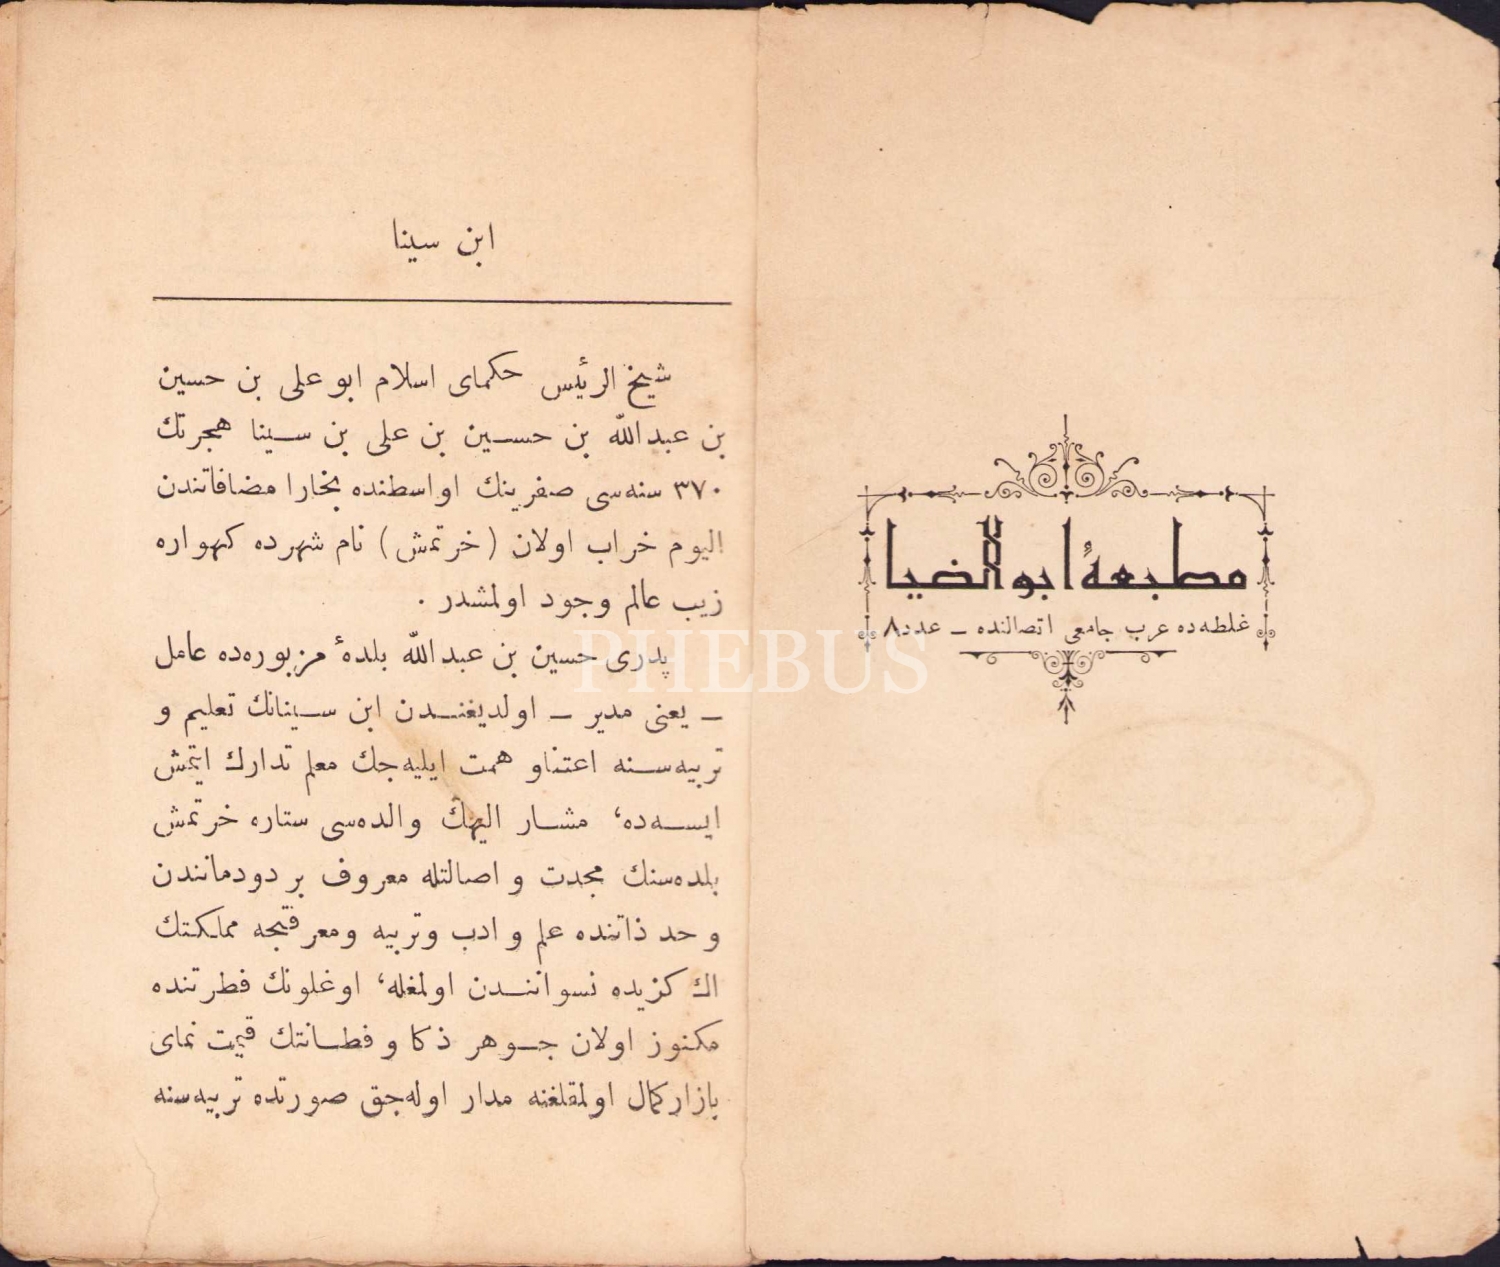 مطبعهٔ ابوالضیا
غلطه‌ده عرب جامعی اتصالنده ـ عدد ٨
ابن سینا
شیخ الرئیس حکمای اسلام ابو علی بن حسین
بن عبدالله بن حسین بن علی بن سینا هجرتك
٣٧٠ سنه‌سی صفرینك اواسطنده بخارا مضافاتندن
الیوم خراب اولان (خرتمش) نام شهرده کهواره
زیب عالم وجود اولمشدر .
پدری حسین بن عبدالله بلدهٔ مزبوره‌ده عامل
ـ یعنی مدیر ـ اولدیغندن ابن سینانك تعلیم و
تربیه‌سنه اعتناو همت ایلیه‌جك معلم تدارك ایتمش
ایسه‌ده، مشار الیهك والده‌سی ستاره خرتمش
بلده‌سنك مجدت و اصالتله معروف بر دودماننندن
و حد ذاتنده علم و ادب وتربیه ومعرفتجه مملکتك
اك کزیده نسوانندن اولمغله، اوغلونك فطرتنده
مکنوز اولان جوهر ذکا و فطانتك قیمت نمای
بازار کمال اولمقلغنه مدار اوله‌جق صورتده تربیه‌سنه
PHEBUS